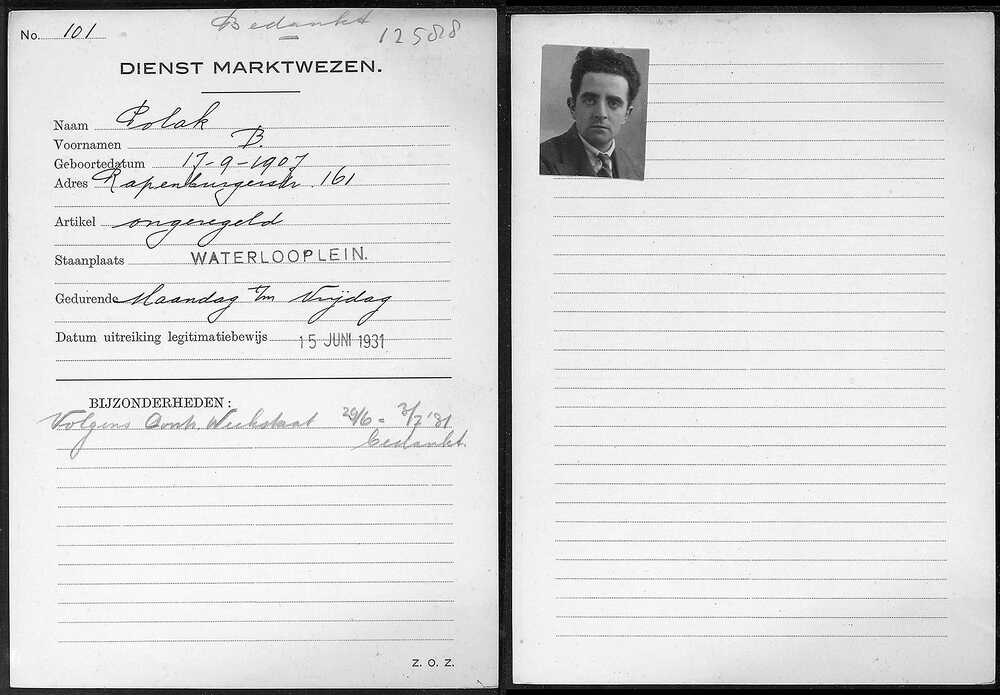 No. 101
Bedankt
12588
DIENST MARKTWEZEN.
Naam Polak
Voornamen B.
Geboortedatum 17-9-1907
Adres Rapenburgerstr 161
Artikel ongeregeld
Staanplaats WATERLOOPLEIN.
Gedurende Maandag t/m Vrijdag
Datum uitreiking legitimatiebewijs 15 JUNI 1931
BIJZONDERHEDEN:
Volgens Contr. Weekstaat 29/6 = 3/7 '31
bedankt.
Z. O. Z.